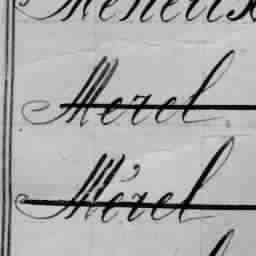 Merel
Mérel